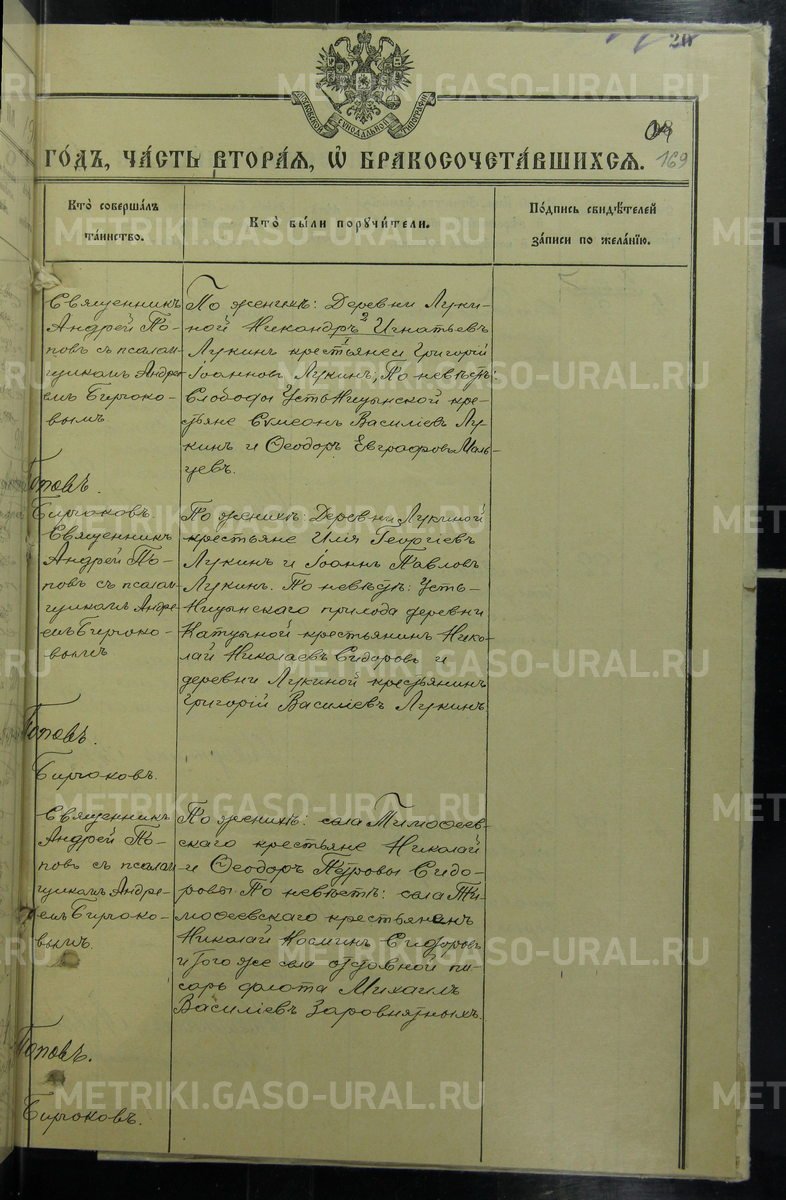 20
169
МОСКОВСКОЙ СѴНОДАЛЬНОЙ ТИПОГРАФІИ
ГО́ДЪ, ЧА́СТЬ ВТОРА́Я, Ѡ҆ БРАКОСОЧЕТА́ВШИХСЯ.
Кто̀ совершалъ
та́инство.
Кто̀ были порꙋчи́тели.
По́дпись свидѣ́телей
за́писи по жела́нїю.
Священникъ
Андрей По-
повъ съ псалом-
щикомъ Андре-
емъ Бирюко-
вымъ
Поповъ.
Бирюковъ
По женихѣ: Деревни Луки-
ной Никандръ 2 Игнатьевъ
Лукинъ крестьяне и 1 Григорій
Іоанновъ Лукинъ, По невѣстѣ:
Слободы Усть-Ницынской кре-
стьяне Сѵмеонъ Василіевъ Лу-
кинъ и Ѳеодоръ Евграфовъ Маль-
цевъ.
Священникъ
Андрей По-
повъ съ псалом-
щикомъ Андре-
емъ Бирюко-
вымъ
Поповъ.
Бирюковъ.
По женихѣ: Деревни Лукиной
крестьяне Илія Георгіевъ
Лукинъ и Іоаннъ Павловъ
Лукинъ. По невѣстѣ: Усть-
Ницынскаго прихода деревни
Катушной крестьянинъ Нико-
лай Николаевъ Сидоровъ и
деревни Лукиной крестьянинъ
Григорій Василіевъ Лукинъ
Священникъ
Андрей По-
повъ съ псалом-
щикомъ Андре-
емъ Бирюко-
вымъ.
Поповъ.
Бирюковъ.
По женихѣ: села Тимоѳеев-
скаго крестьяне Николай
и Ѳеодоръ Петровы Сидо-
ровы. По невѣстѣ: села Ти-
моѳеевскаго крестьянинъ
Николай Косминъ Сидоровъ
и того же села отставной пи-
сарь флота Михаилъ
Василіевъ Заровнятныхъ.
METRIKI.GASO-URAL.RU